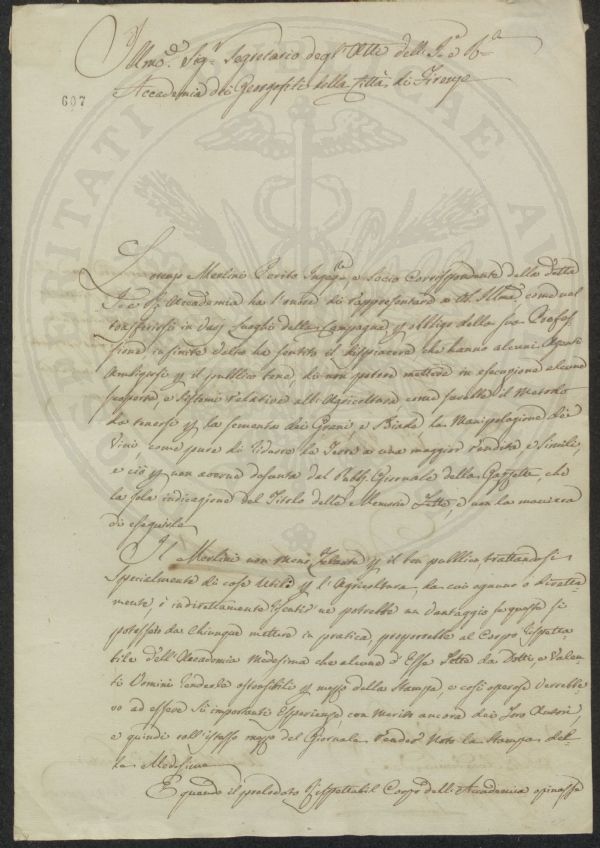 Illmo. Sigr. Segretario degl'Atti dell'I. e R.
Accademia dei Georgofili della Città di Firenze
607
Lorenzo Merlini Perito Ingegre. e Socio Corrispondente della detta
I. e R. Accademia ha l'onore di rappresentare a VS. Illma. come nel
trasferirsi in varj luoghi della Campagna p obbligo della sua Profes-
sione infinite volte ha sentito il dispiacere che hanno alcuni Agenti
ambiziosi p il pubblico bene, di non potere mettere in esecuzione alcune
scoperte, e sistemi relativi all'Agricoltura come sarebbe il Metodo
da tenersi p la sementa dei Grani e Biade la Manipolazione dei
Vini, come pure di ridurre la Terra a una maggior rendita e simili,
e ciò p non averne desunto dal Pubb. Giornale della Gazzetta, che
la sola indicazione del Titolo delle Memorie Lette, e non la maniera
di eseguirle
Il Merlini non meno zelante p il ben pubblico trattandosi
specialmente di cose utili p l'Agricoltura, da cui ognuno o diretta-
mente, o indirettamente sentir ne potrebbe un vantaggio se queste si
potessero da chiunque mettere in pratica proporrebbe al Corpo rispetta-
bile dell'Accademia medesima che alcune d'Esse Lette da Dotti, e Valen-
ti Uomini renderle ostensibili p mezzo della Stampa, e così operose verrebbe-
ro ad essere sì importanti Esperienze, con merito ancora dei loro Autori,
e quindi coll'istesso mezzo del Giornale render noto la Stampa del-
la Medesima
E quando il prelodato rispettabil Corpo dell'Accademia opinasse